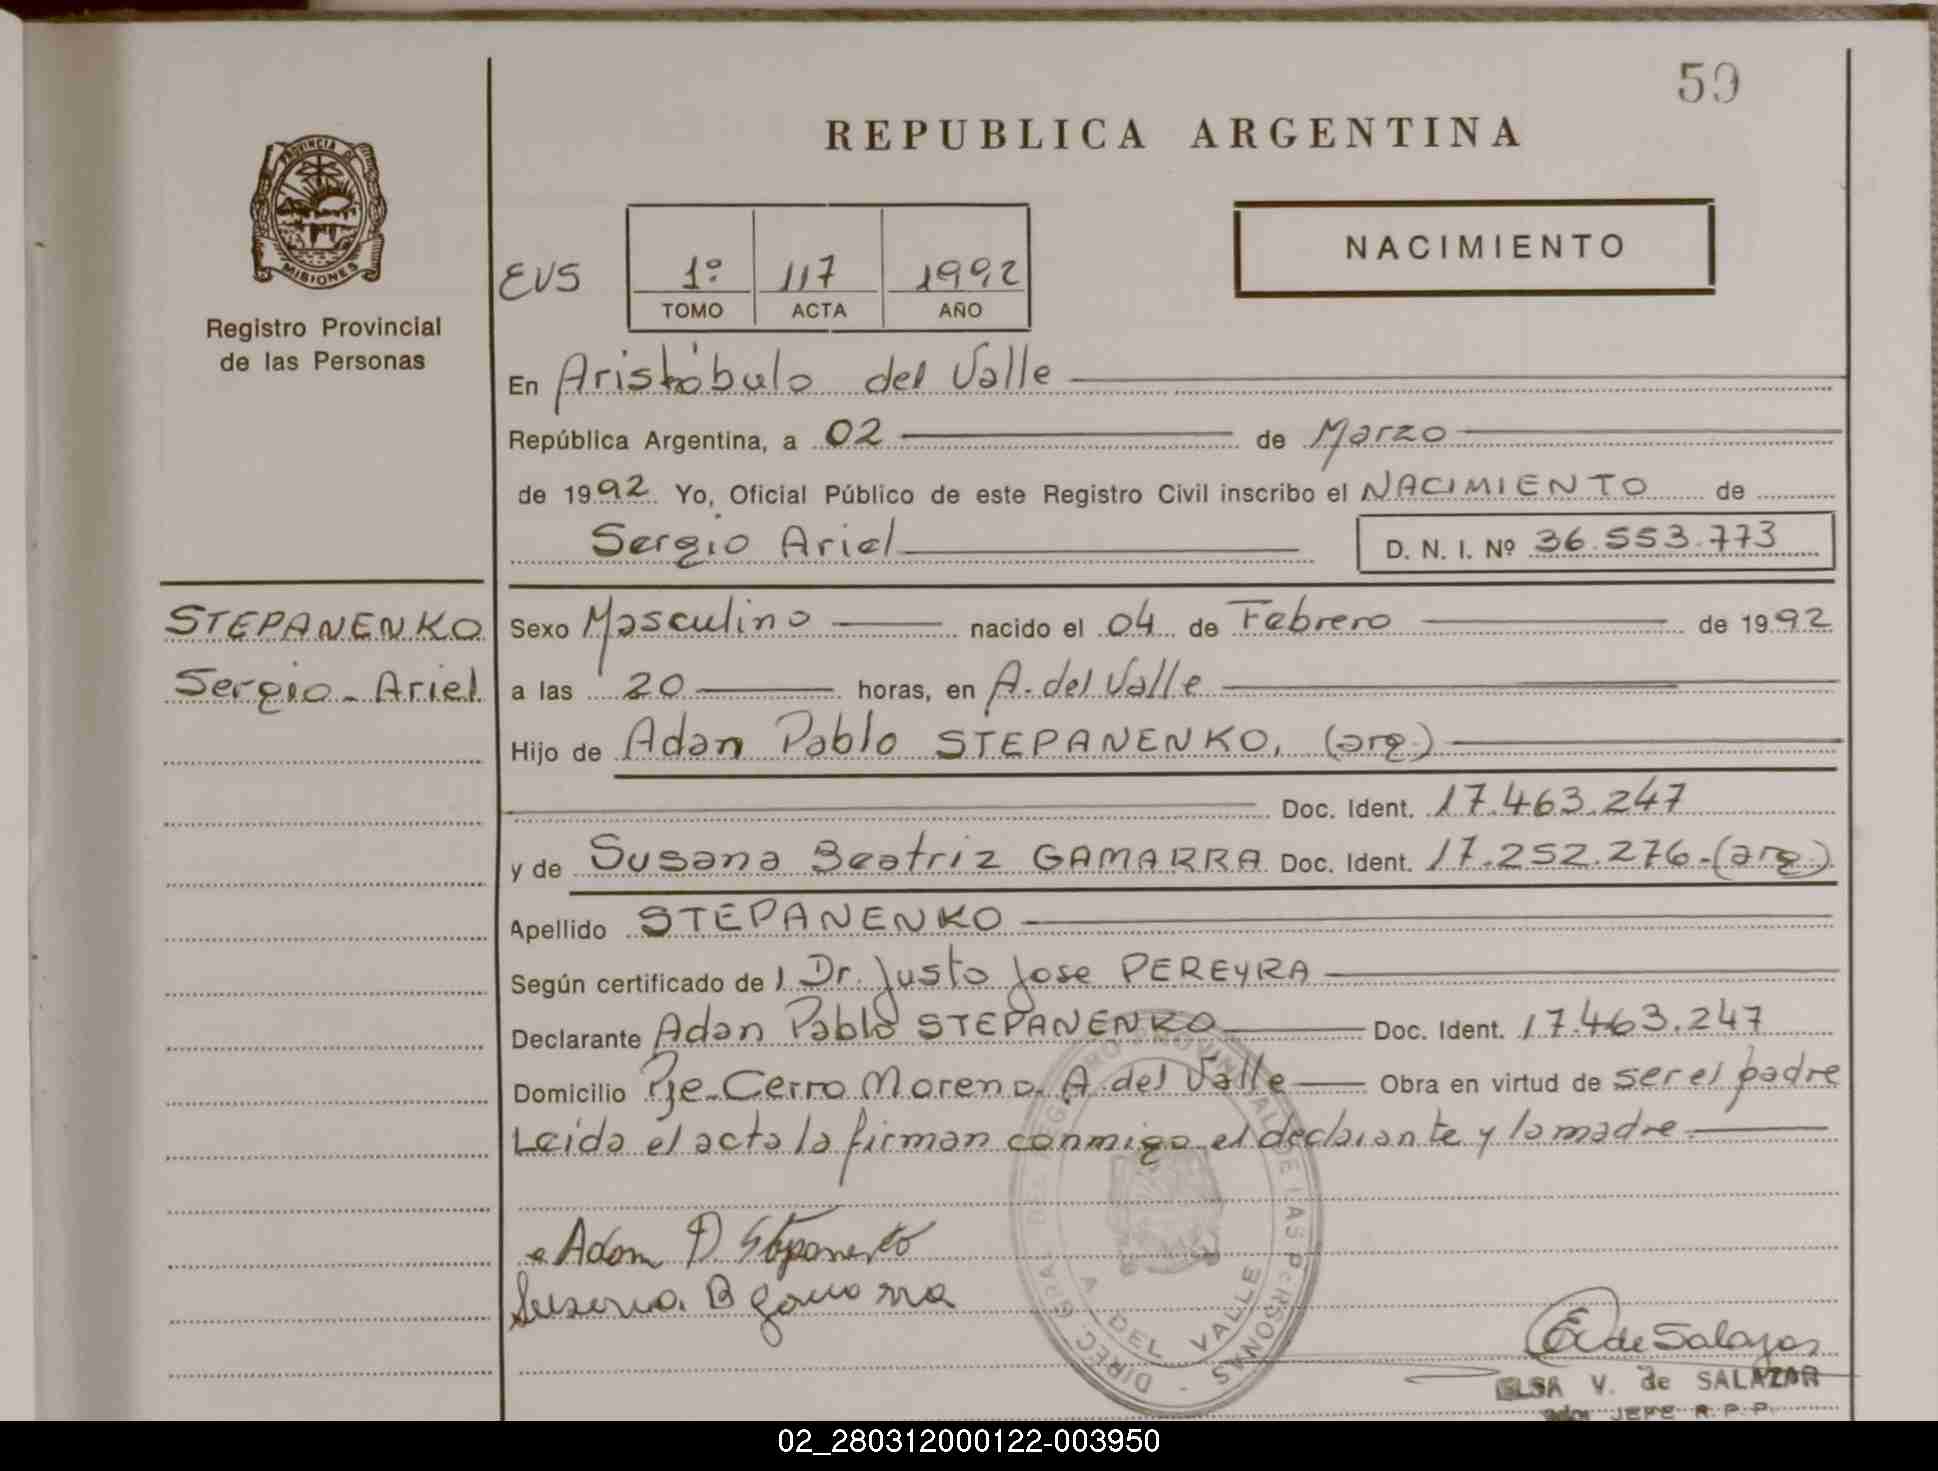 59
REPUBLICA ARGENTINA
PROVINCIA DE
MISIONES
Registro Provincial
de las Personas
EVS
1º 117 1992
TOMO ACTA AÑO
NACIMIENTO
En Aristóbulo del Valle
República Argentina, a 02 de Marzo
de 1992 Yo, Oficial Público de este Registro Civil inscribo el NACIMIENTO de
Sergio Ariel D. N. I. Nº 36.553.773
STEPANENKO
Sergio - Ariel
Sexo Masculino nacido el 04 de Febrero de 1992
a las 20 horas, en A. del Valle
Hijo de Adan Pablo STEPANENKO, (arg.)
Doc. Ident. 17.463.247
y de Susana Beatriz GAMARRA Doc. Ident. 17.252.276-(arg.)
Apellido STEPANENKO
Según certificado de l Dr. Justo Jose PEREYRA
Declarante Adan Pablo STEPANENKO Doc. Ident. 17.463.247
Domicilio Pje-Cerro Moreno. A. del Valle Obra en virtud de ser el padre
Leida el acta la firman conmigo el declarante y la madre
Adam P. Stepanenko
Susana. B gamarra
DIREC. GRAL. DEL REGISTRO PROVINCIAL DE LAS PERSONAS
A. DEL VALLE
E de Salazar
ELSA V. de SALAZAR
JEFE R.P.P.
02_280312000122-003950